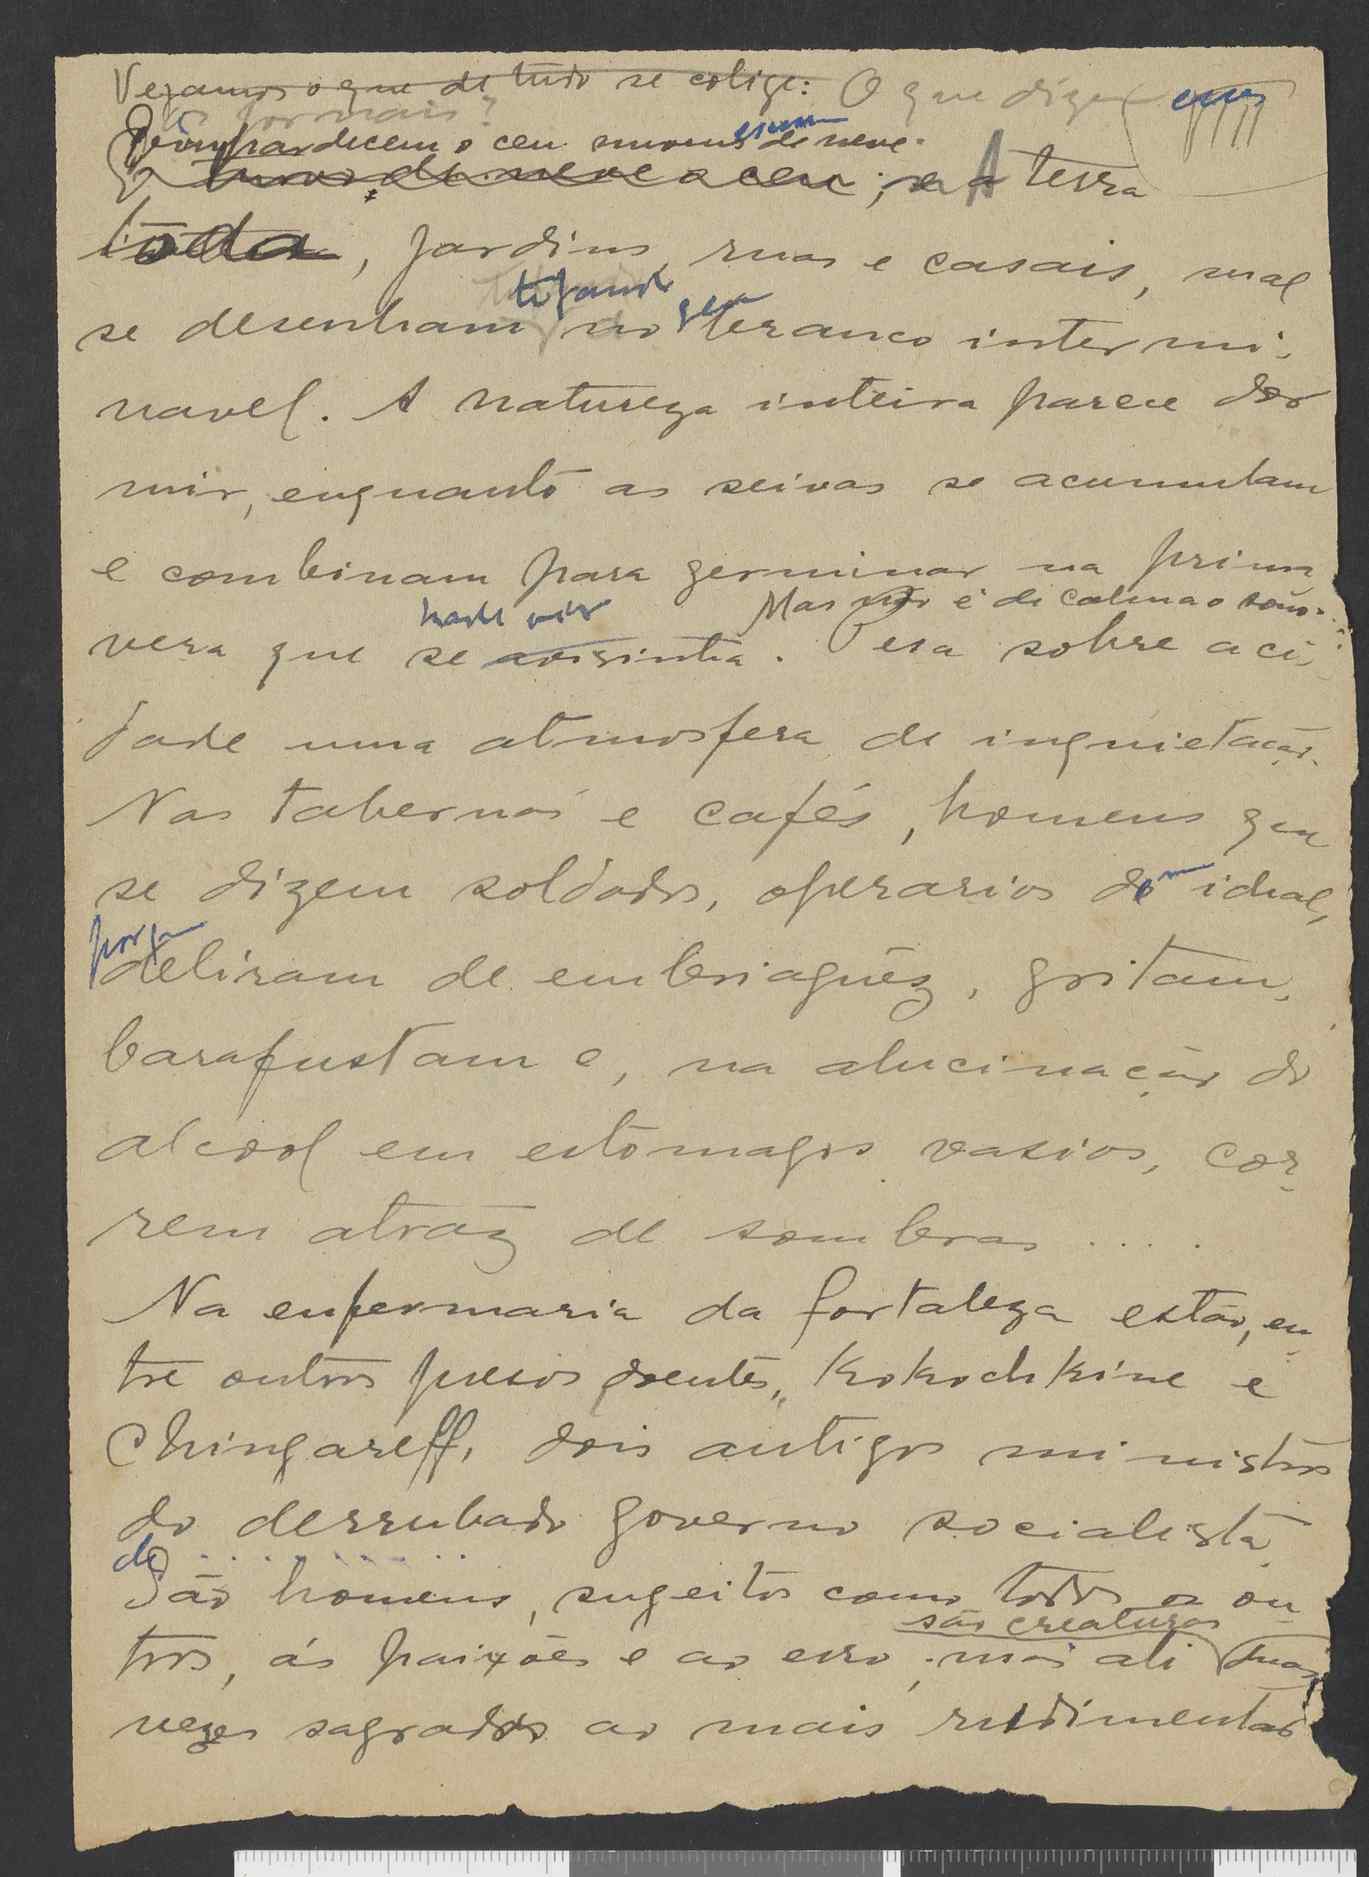 Vejamos o que de tudo se colige: O que dizem
os jornais?
pardecem o ceu nuvens de neve.
Turvo de neve o ceu; e a A terra
toda, jardins, ruas e casais, mal
tufando
se desenham no branco intermi-
navel. A natureza inteira parece dor
mir, enquanto as seivas se acumulam
e combinam para germinar na prima
hade vir Mas não é de calma o sono.
vera que se avisinha. Pesa sobre a ci-
dade uma atmosfera de inquietação.
Nas tabernas e cafés, homens que
se dizem soldados, operarios de um ideal,
deliram de embriaguêz, gritam,
barafustam e, na alucinação do
alcool em estomagos vasios, cor-
rem atraz de sombras ....
Na enfermaria da fortaleza estão, en
tre outros presos doentes, Kokochkine e
Chingareff, dois antigos ministros
do derrubado governo socialista.
São homens, sugeitos como todos os ou
são creaturas
tros, ás paixões e ao erro; mas ali duas
vezes sagrados ao mais rudimentar